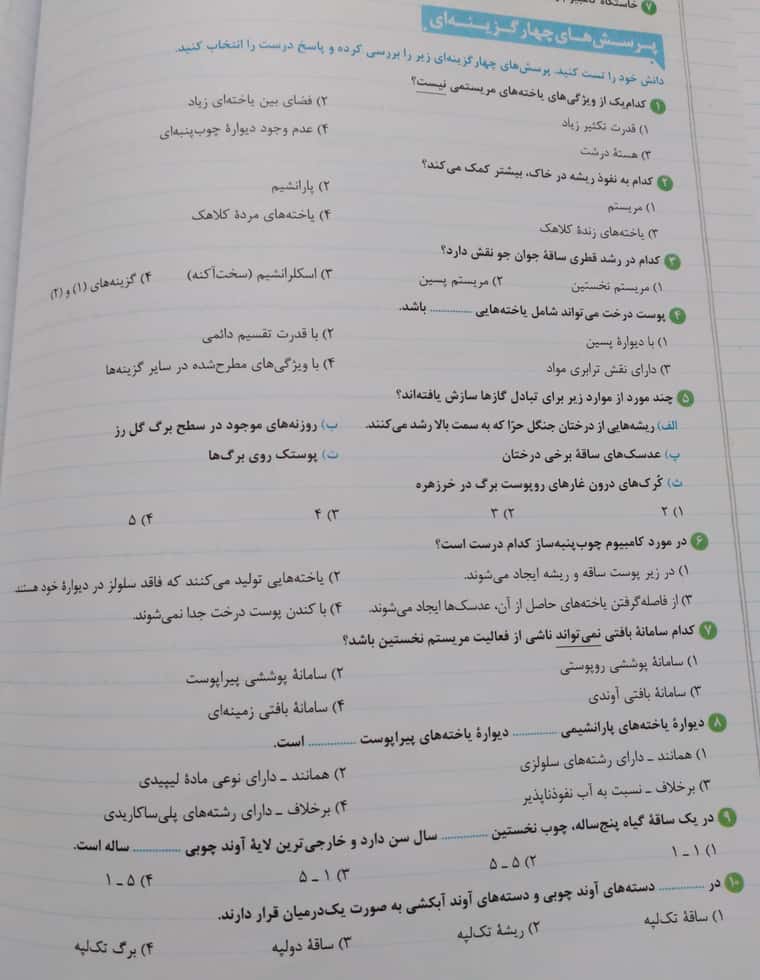 ۷ خاستگاه
پرسش‌های چهارگزینه‌ای
دانش خود را تست کنید. پرسش‌های چهارگزینه‌ای زیر را بررسی کرده و پاسخ درست را انتخاب کنید.
۱ کدام‌یک از ویژگی‌های یاخته‌های مریستمی نیست؟
۱) قدرت تکثیر زیاد ۲) فضای بین یاخته‌ای زیاد
۳) هستهٔ درشت ۴) عدم وجود دیوارهٔ چوب‌پنبه‌ای
۲ کدام به نفوذ ریشه در خاک، بیشتر کمک می‌کند؟
۱) مریستم ۲) پارانشیم
۳) یاخته‌های زندهٔ کلاهک ۴) یاخته‌های مردهٔ کلاهک
۳ کدام در رشد قطری ساقهٔ جوان جو نقش دارد؟
۱) مریستم نخستین ۲) مریستم پسین ۳) اسکلرانشیم (سخت‌آکنه) ۴) گزینه‌های (۱) و (۲)
۴ پوست درخت می‌تواند شامل یاخته‌هایی ............ باشد.
۱) با دیوارهٔ پسین ۲) با قدرت تقسیم دائمی
۳) دارای نقش ترابری مواد ۴) با ویژگی‌های مطرح‌شده در سایر گزینه‌ها
۵ چند مورد از موارد زیر برای تبادل گازها سازش یافته‌اند؟
الف) ریشه‌هایی از درختان جنگل حرّا که به سمت بالا رشد می‌کنند. ب) روزنه‌های موجود در سطح برگ گل رز
پ) عدسک‌های ساقهٔ برخی درختان ت) پوستک روی برگ‌ها
ث) کُرک‌های درون غارهای روپوست برگ در خرزهره
۱) ۲ ۲) ۳ ۳) ۴ ۴) ۵
۶ در مورد کامبیوم چوب‌پنبه‌ساز کدام درست است؟
۱) در زیر پوست ساقه و ریشه ایجاد می‌شوند. ۲) یاخته‌هایی تولید می‌کنند که فاقد سلولز در دیوارهٔ خود هستند
۳) از فاصله‌گرفتن یاخته‌های حاصل از آن، عدسک‌ها ایجاد می‌شوند. ۴) با کندن پوست درخت جدا نمی‌شوند.
۷ کدام سامانهٔ بافتی نمی‌تواند ناشی از فعالیت مریستم نخستین باشد؟
۱) سامانهٔ پوششی روپوستی ۲) سامانهٔ پوششی پیراپوست
۳) سامانهٔ بافتی آوندی ۴) سامانهٔ بافتی زمینه‌ای
۸ دیوارهٔ یاخته‌های پارانشیمی ............ دیوارهٔ یاخته‌های پیراپوست ............ است.
۱) همانند ـ دارای رشته‌های سلولزی ۲) همانند ـ دارای نوعی مادهٔ لیپیدی
۳) برخلاف ـ نسبت به آب نفوذناپذیر ۴) برخلاف ـ دارای رشته‌های پلی‌ساکاریدی
۹ در یک ساقهٔ گیاه پنج‌ساله، چوب نخستین ............ سال سن دارد و خارجی‌ترین لایهٔ آوند چوبی ............ ساله است.
۱) ۱ ـ ۱ ۲) ۵ ـ ۵ ۳) ۱ ـ ۵ ۴) ۵ ـ ۱
۱۰ در ............ دسته‌های آوند چوبی و دسته‌های آوند آبکشی به صورت یک‌درمیان قرار دارند.
۱) ساقهٔ تک‌لپه ۲) ریشهٔ تک‌لپه ۳) ساقهٔ دولپه ۴) برگ تک‌لپه